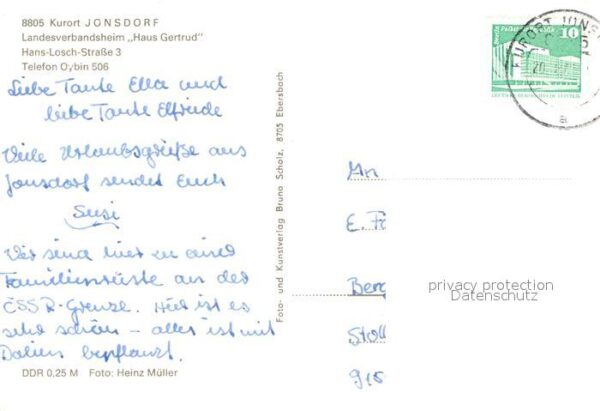 8805 Kurort JONSDORF
Landesverbandsheim „Haus Gertrud"
Hans-Losch-Straße 3
Telefon Oybin 506
Liebe Tante Ella und
liebe Tante Elfriede
Viele Urlaubsgrüße aus
Jonsdorf sendet Euch
Susi
Wir sind hier zu einer
Familienrüste an der
ČSSR-Grenze. Hier ist es
sehr schön – alles ist mit
Dalien bepflanzt.
DDR 0,25 M Foto: Heinz Müller
Foto- und Kunstverlag Bruno Scholz, 8705 Ebersbach
10
KURORT JONS
An
E.
Berg
Stoll
915
privacy protection
Datenschutz